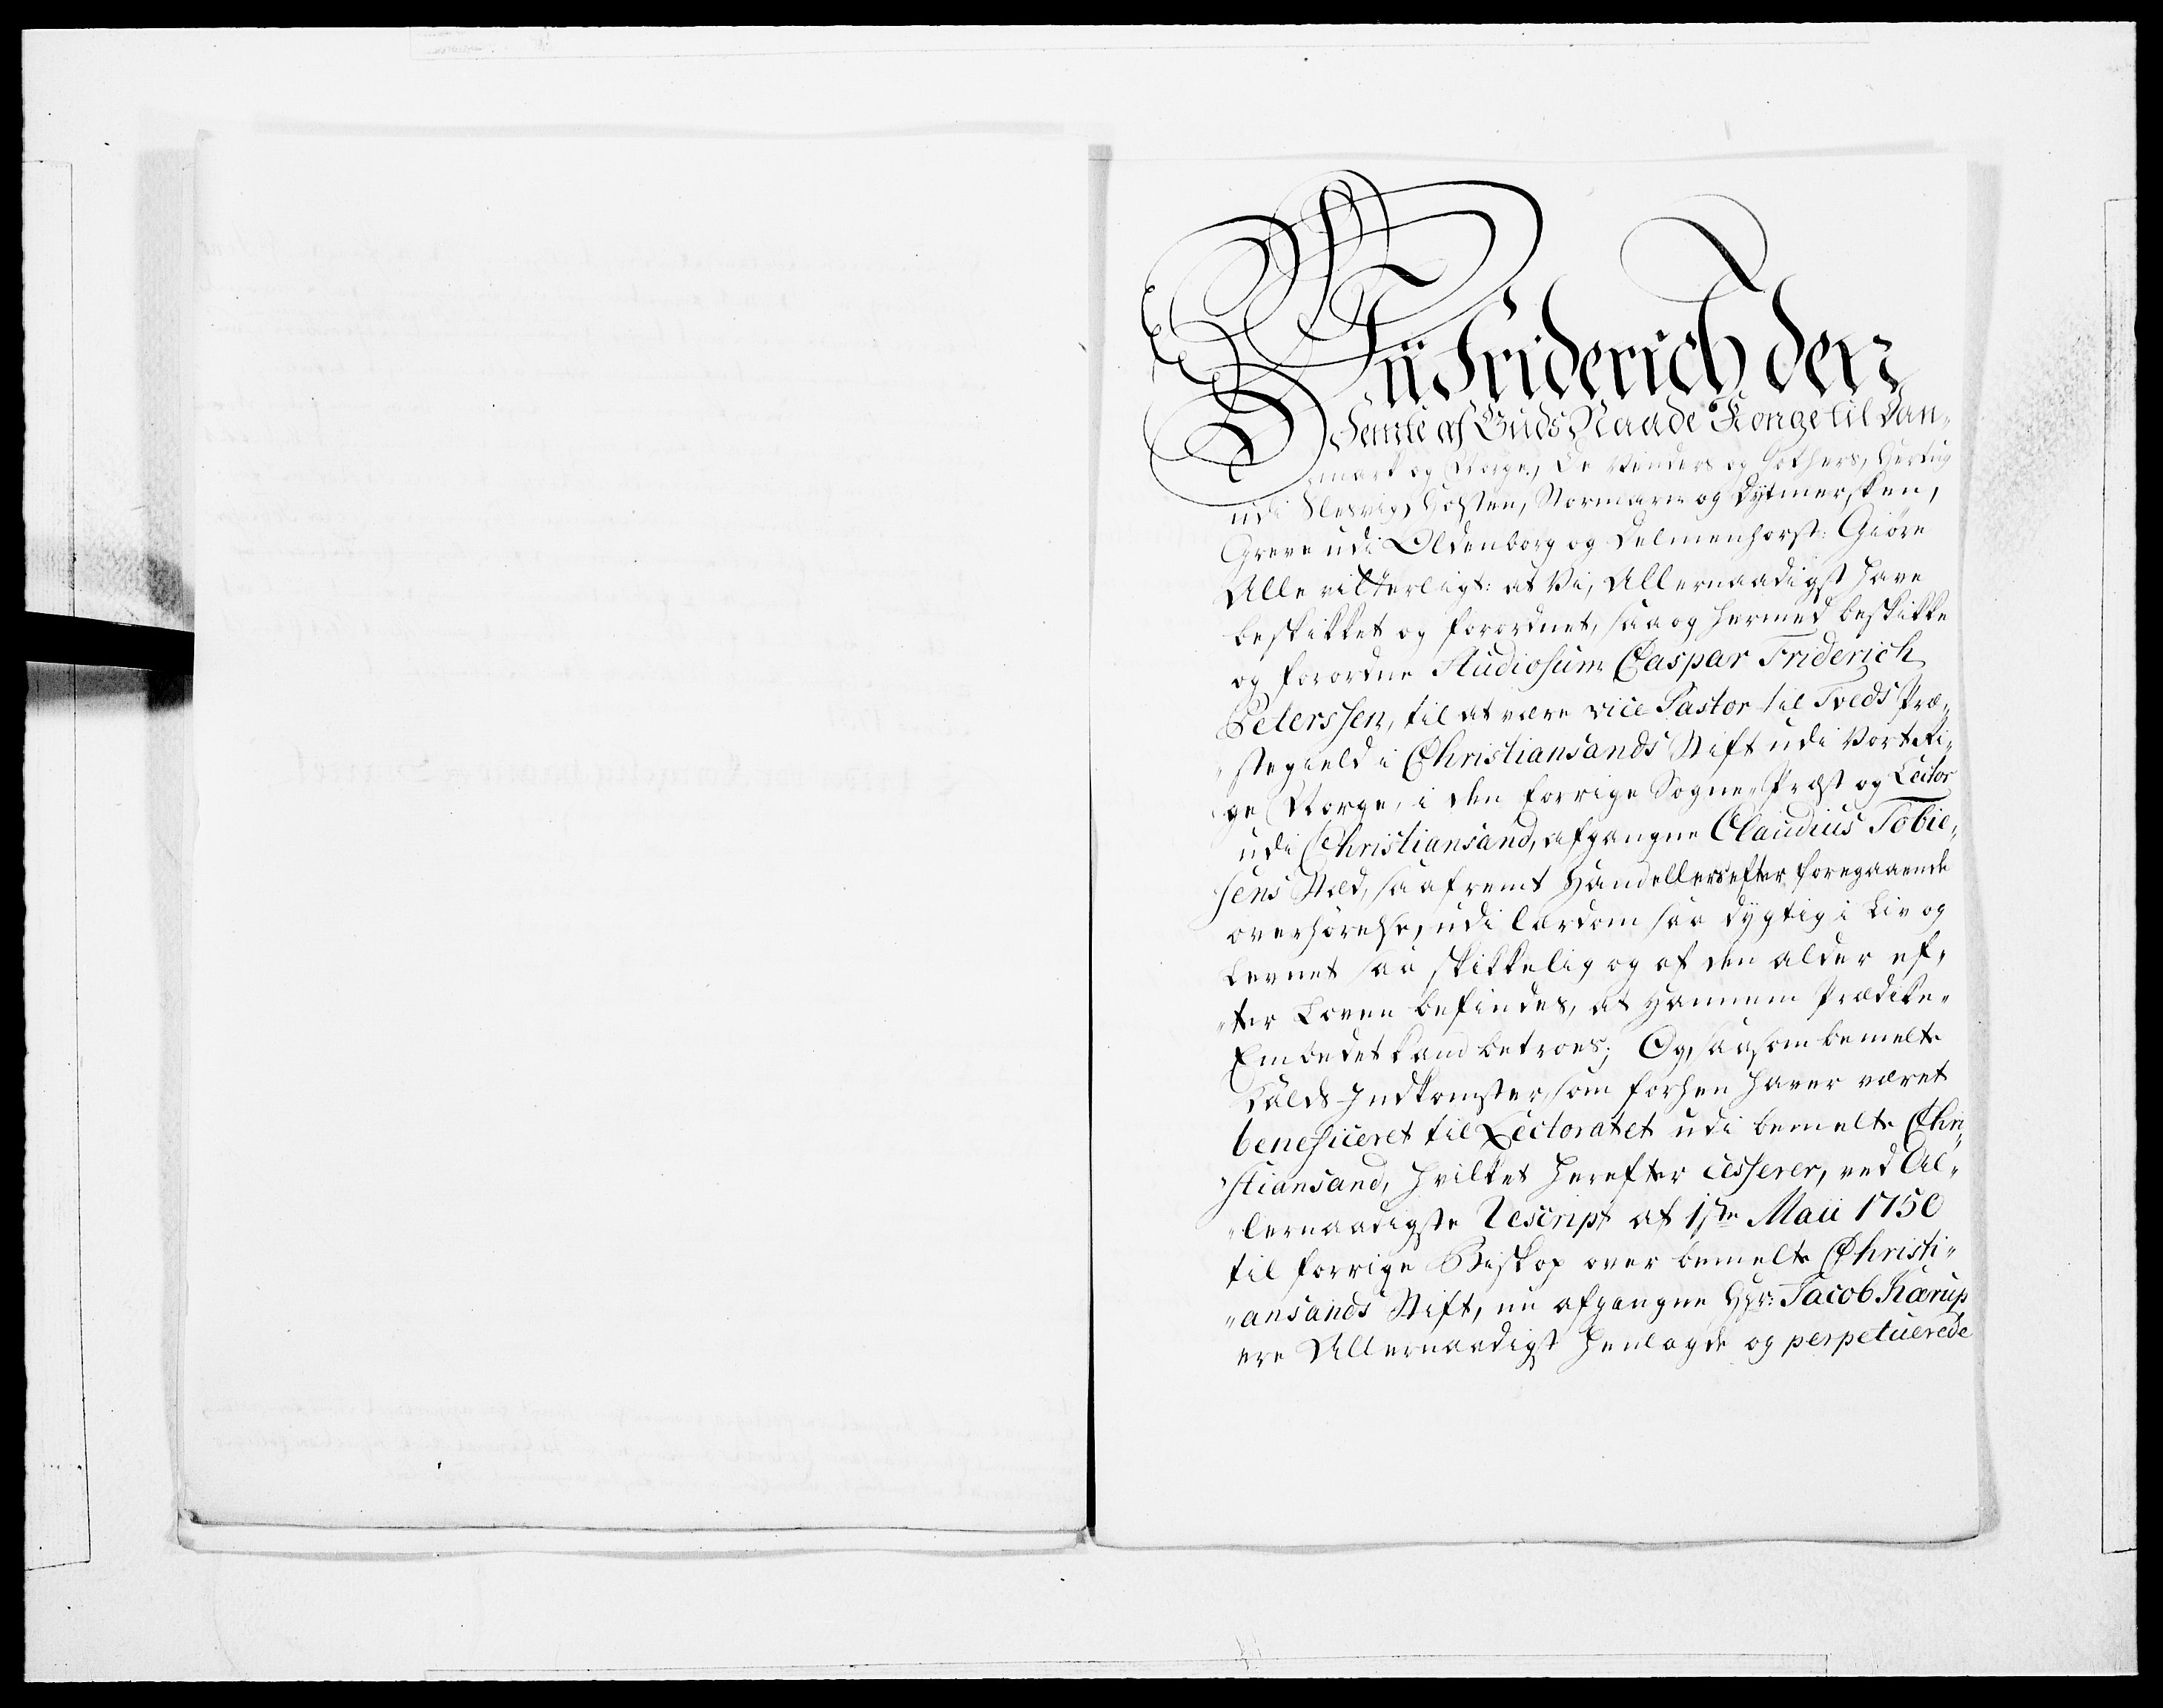 Vii Friderich den
Femte af Guds Naade Konge til Dan„
mark og Norge, De Venders og Gothers, Hertug
udi Slesvig, Holsten, Stormarn og Dytmersken,
Greve udi Oldenborg og Delmenhorst: Giøre
Alle vitterligt: at Vi, Allernaadigst have
beskikket og forordnet, saa og hermed beskikke
og forordne Studiosum Caspar Friderich
Peterssen, til at være vice Pastor til Tveds Præ„
„stegield i Christiansands Stift udi Vort Ri„
ge Norge, i den forrige Sogne-Præst og Lector
udi Christiansand, afgangne Claudius Tobie„
sens Stæd, saafremt Hand ellers efter foregaaende
overhørelse, udi lærdom saa dygtig i Liv og
Levnet saa skikkelig og af den alder ef„
„ter Loven befindes, at Hannem Prædike„
Embedet kand betroes; Og saasom bemelte
Kalds Indkomster, som forhen haver været
beneficeret til Lectoratet udi bemelte Chri„
„stiansand, hvilket herefter cesserer, ved Al„
„lernaadigste Rescript af 1ste Maii 1750
til forrige Biskop over bemelte Christi„
„ansands Stift, nu afgangne Hr: Jacob Kærup
ere Allernaadigst henlagde og perpetuerede